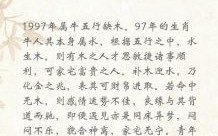 1997年属牛五行缺木。97年的生肖
牛人其本身属水，根据五行之中，水
生木。则有木之人才思敏捷诸事顺
利，可家宅富贵之人。补木迎水，乃
化金之兆，表其可财官进取，若命中
无木，则感情运势不佳，良缘与其背
道而驰，即便遇见亦是同床异梦，同
问不乐，貌合神离，家宅无宁，青年